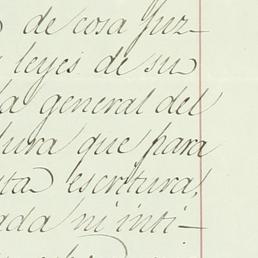 de cosa juz-
leyes de su
la general del
dura que para
escritura,
ni inti-